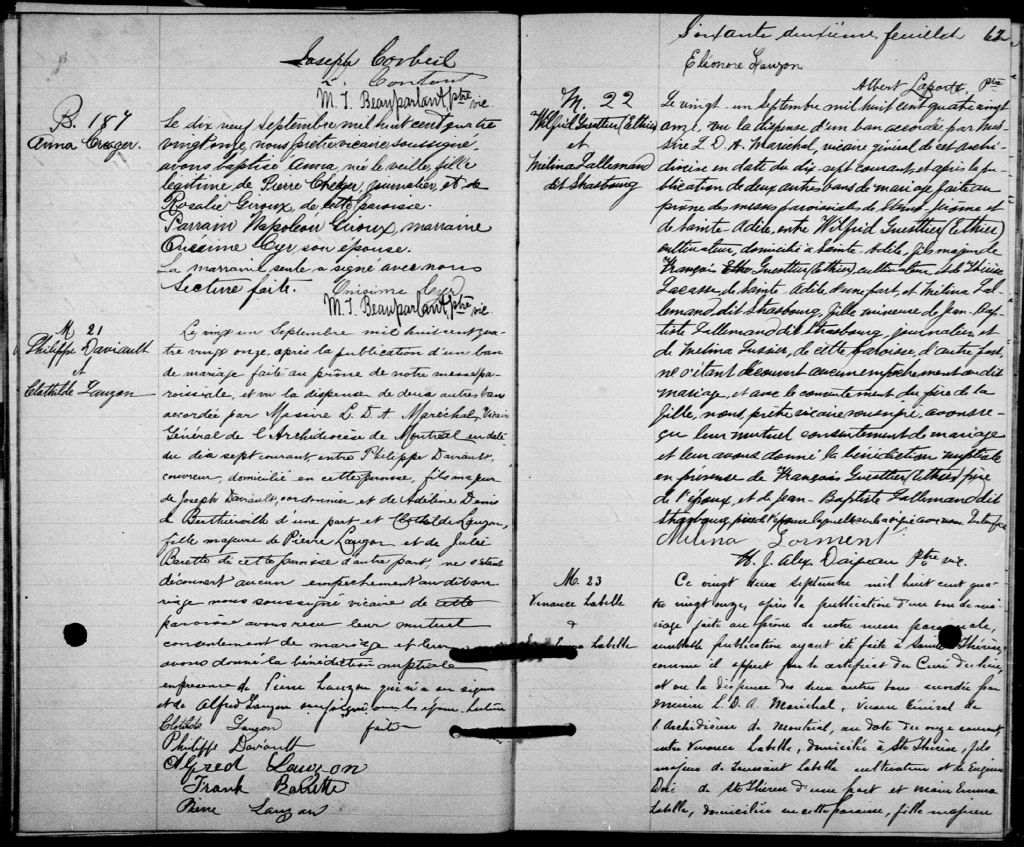 Joseph Corbeil
L. Contant
M. J. Beauparlant, ptre vic.
B. 187
Anna Creager.
Le dix neuf septembre mil huit cent quatre
vingt onze, nous prêtre vicaire soussigné,
avons baptisé Anna, née la veille, fille
légitime de Pierre Creager, journalier, et de
Rosalie Giroux, de cette paroisse.
Parrain Napoléon Giroux, marraine
Onésime Cyr son épouse.
La marraine seule a signé avec nous
Lecture faite. Onisime Cyr
M. J. Beauparlant, ptre vic
M. 21
Philippe Daviault
et
Clothilde Lauzon
Le vingt un Septembre mil huit cent qua-
tre vingt onze, après la publication d'un ban
de mariage faite au prône de notre messe pa-
roissiale, et vu la dispense de deux autres bans
accordée par Messire L. D. A. Maréchal, Vicaire
Général de l'Archidiocèse de Montréal en date
du dix sept courant, entre Philippe Daviault,
couvreur, domicilié en cette paroisse, fils majeur
de Joseph Daviault, cordonnier et de Adeline Denis
de Berthierville d'une part et Clotilde Lauzon,
fille majeure de Pierre Lauzon et de Julie
Barette de cette paroisse d'autre part, ne s'étant
découvert aucun empêchement au dit ma-
riage nous soussigné vicaire de cette
paroisse avons reçu leur mutuel
consentement de mariage et leur
avons donné la bénédiction nuptiale
en présence de Pierre Lauzon qui n'a su signer
et de Alfred Lauzon lecture
faite
Clotilde Lauzon
Philippe Daviault
Alfred Lauzon
Frank Barette
Pierre Lauzon
Soixante deuxième feuillet 62
Elionore Lauzon
Albert Laporte, Ptre
M. 22
Wilfrid Guesttier (Ethier)
et
Mélina Lallemand
dit Strasbourg
Le vingt un Septembre mil huit cent quatre vingt
onze, vu la dispense d'un ban accordée par Mes-
sire L. D. A. Maréchal, vicaire général de cet archi-
diocèse en date du dix sept courant, et après la pu-
blication de deux autres bans de mariage faite au
prône des messes paroissiales de et
de Sainte Adèle, entre Wilfrid Guesttier (Ethier)
cultivateur, domicilié à Sainte Adèle, fils majeur de
François Guesttier (Ethier), cultivateur, et de
Lacasse, de Sainte-Adèle d'une part, et Mélina Lal-
lemand dit Strasbourg, fille mineure de Jean-Bap-
tiste Lallemand dit Strasbourg, journalier et
de Mélina Lussier, de cette paroisse, d'autre part,
ne s'étant découvert aucun empêchement au dit
mariage, et avec le consentement du père de la
fille, nous, prêtre vicaire soussigné, avons re-
çu leur mutuel consentement de mariage
et leur avons donné la bénédiction nuptiale
en présence de François Guesttier (Ethier) père
de l'époux, et de Jean-Baptiste Lallemand dit
Strasbourg, père de l'épouse
Mélina Lorment
H. J. Alex. Daigneau Ptre vic.
M. 23
Venance Labelle
&
Emma Labelle
Ce vingt deux septembre mil huit cent qua-
tre vingt onze, après la publication d'un ban de ma-
riage faite au prône de notre messe paroissiale,
semblable publication ayant été faite à Sainte Thérèse,
comme il appert par le certificat du Curé du lieu,
et vu la dispense des deux autres bans accordée par
Messire L. D. A. Maréchal, Vicaire Général de
l'Archidiocèse de Montréal, en date du onze courant,
entre Venance Labelle, domicilié à Ste Thérèse, fils
majeur de Toussaint Labelle cultivateur et de Eugénie
de Ste Thérèse d'une part et Marie Emma
Labelle, domiciliée en cette paroisse, fille majeure